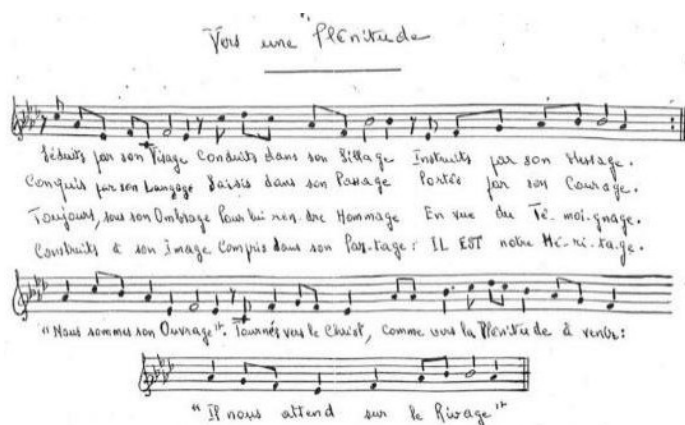 Vers une Plénitude
Séduits par son Visage Conduits dans son Sillage Instruits par son Message.
Conquis par son Langage Saisis dans son Passage Portés par son Courage.
Toujours, sous son Ombrage Pour lui ren-dre Hommage En vue du Té-moi-gnage.
Construits à son Image Compris dans son Par-tage : IL EST notre Hé-ri-ta-ge.
"Nous sommes son Ouvrage". Tournés vers le Christ, comme vers la Plénitude à venir :
"Il nous attend sur le Rivage"